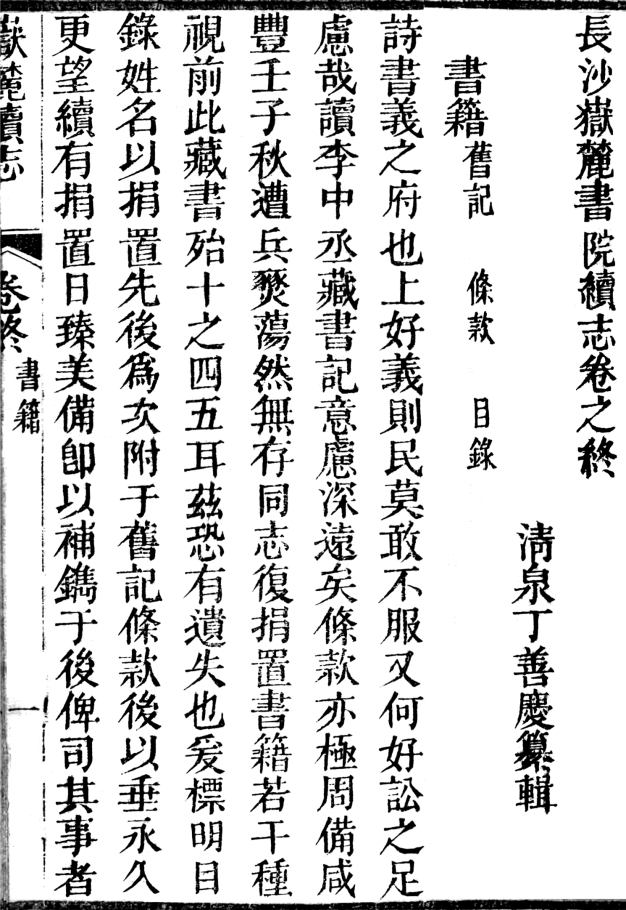 長沙嶽麓書院續志卷之終
淸泉丁善慶纂輯
書籍 舊記 條款 目錄
詩書義之府也上好義則民莫敢不服又何好訟之足
慮哉讀李中丞藏書記意慮深遠矣條款亦極周備咸
豐壬子秋遭兵燹蕩然無存同志復捐置書籍若干種
視前此藏書殆十之四五耳茲恐有遺失也爰標明目
錄姓名以捐置先後爲次附于舊記條款後以垂永久
更望續有捐置日臻美備卽以補鐫于後俾司其事者
嶽麓續志 卷終 書籍 一